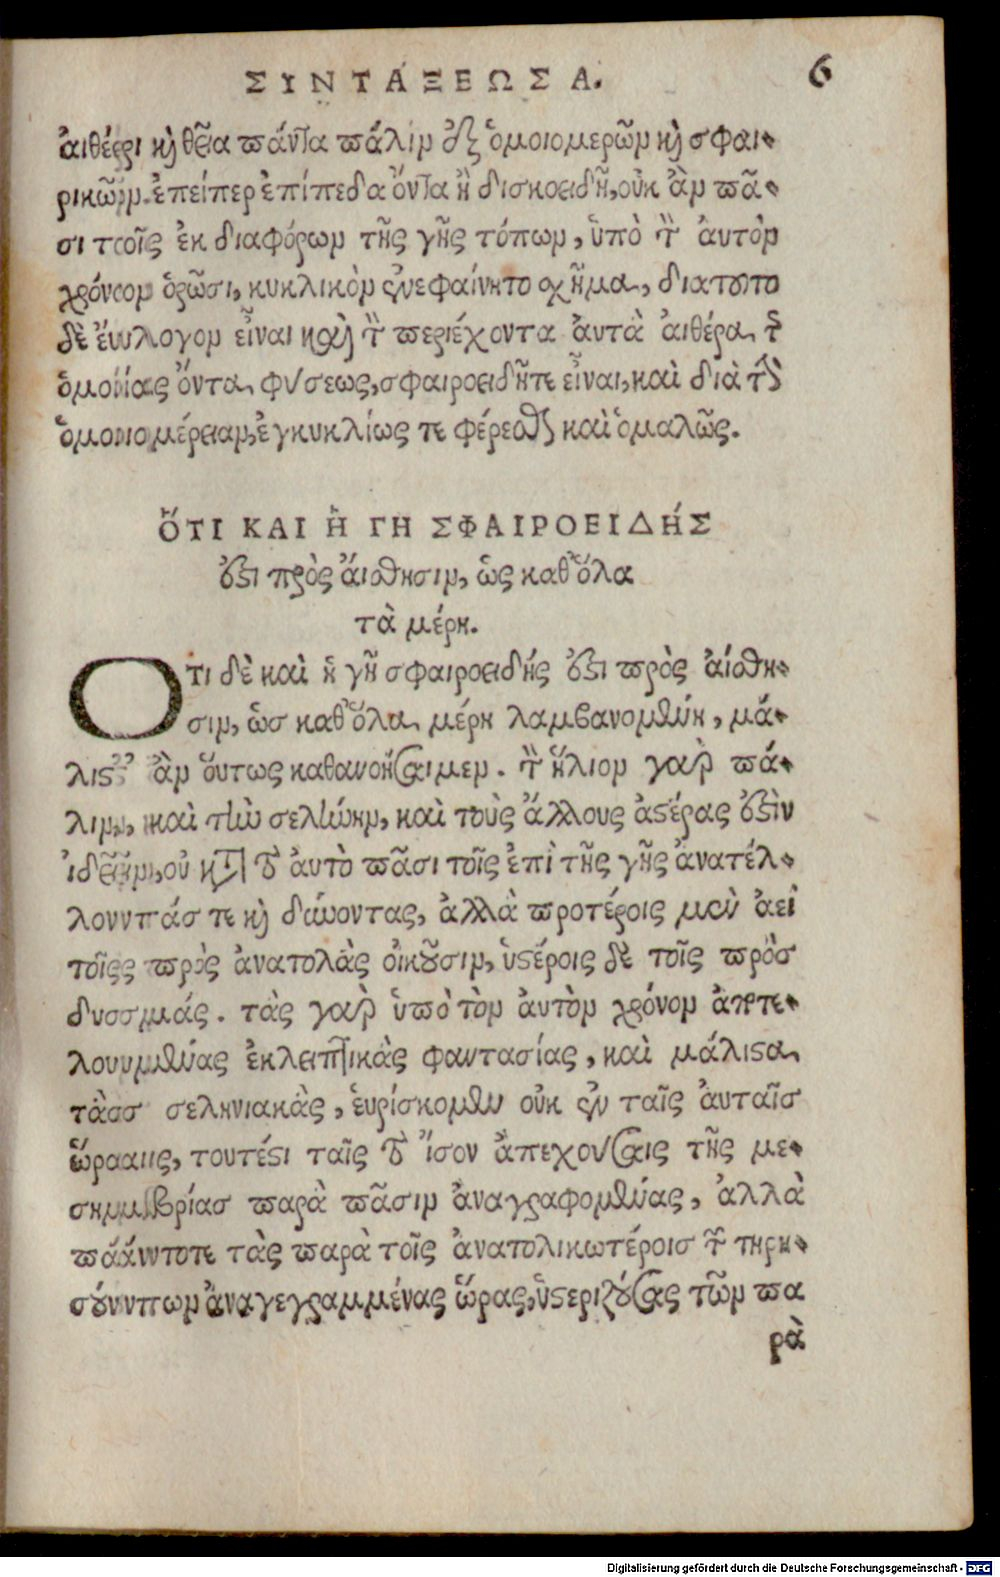 ΣΥΝΤΆΞΕΩΣ Α.
6
αἰθέρι καὶ θεῖα πάντα πάλιν ἐξ ὁμοιομερῶν καὶ σφαι-
ρικῶν. ἐπείπερ ἐπίπεδα ὄντα ἢ δισκοειδῆ, οὐκ ἂν πᾶ-
σι τοῖς ἐκ διαφόρων τῆς γῆς τόπων, ὑπὸ τὸν αὐτὸν
χρόνον ὁρῶσι, κυκλικὸν ἐνεφαίνητο σχῆμα, διατοῦτο
δὲ ἔυλογον εἶναι καὶ τὸν περιέχοντα ἀυτὰ αἰθέρα τῆς
ὁμοίας ὄντα φύσεως, σφαιροειδῆ τε εἶναι, καὶ διὰ τὴν
ὁμοιομέρειαν, ἐγκυκλίως τε φέρεσθαι καὶ ὁμαλῶς.
ὍΤΙ ΚΑΙ Ἡ ΓΗ ΣΦΑΙΡΟΕΙΔΉΣ
ἐστι πρὸς ἄισθησιν, ὡς καθ᾽ ὅλα
τὰ μέρη.
ΟΤΙ δὲ καὶ ἡ γῆ σφαιροειδής ἐστι πρὸς ἀίσθη-
σιν, ὡς καθ᾽ ὅλα μέρη λαμβανομένη, μά-
λιστ᾽ ἂν ὅυτως κατανοήσαιμεν. τὸν ἥλιον γὰρ πά-
λιν, καὶ τὴν σελήνην, καὶ τοὺς ἄλλους ἀστέρας ἐστὶν
ἰδεῖν, οὐ κατὰ τὸ ἀυτὸ πᾶσι τοῖς ἐπὶ τῆς γῆς ἀνατέλ-
λοντάς τε καὶ δύνοντας, ἀλλὰ προτέροις μὲν ἀεὶ
τοῖς πρὸς ἀνατολὰς ὀικοῦσιν, ὑστέροις δὲ τοῖς πρὸς
δυσμάς. τὰς γὰρ ὑπὸ τὸν ἀυτὸν χρόνον ἀποτε-
λουμένας ἐκλειπτικὰς φαντασίας, καὶ μάλιστα
τὰς σεληνιακὰς, ἑυρίσκομεν οὐκ ἐν ταῖς ἀυταῖς
ὥραις, τουτέστι ταῖς τὸ ἴσον ἀπεχούσαις τῆς με-
σημβρίας παρὰ πᾶσιν ἀναγραφομένας, ἀλλὰ
πάντοτε τὰς παρὰ τοῖς ἀνατολικωτέροις τῶν τηρη-
σάντων ἀναγεγραμμένας ὥρας, ὑστεριζούσας τῶν πα
ρὰ
Digitalisierung gefördert durch die Deutsche Forschungsgemeinschaft - DFG